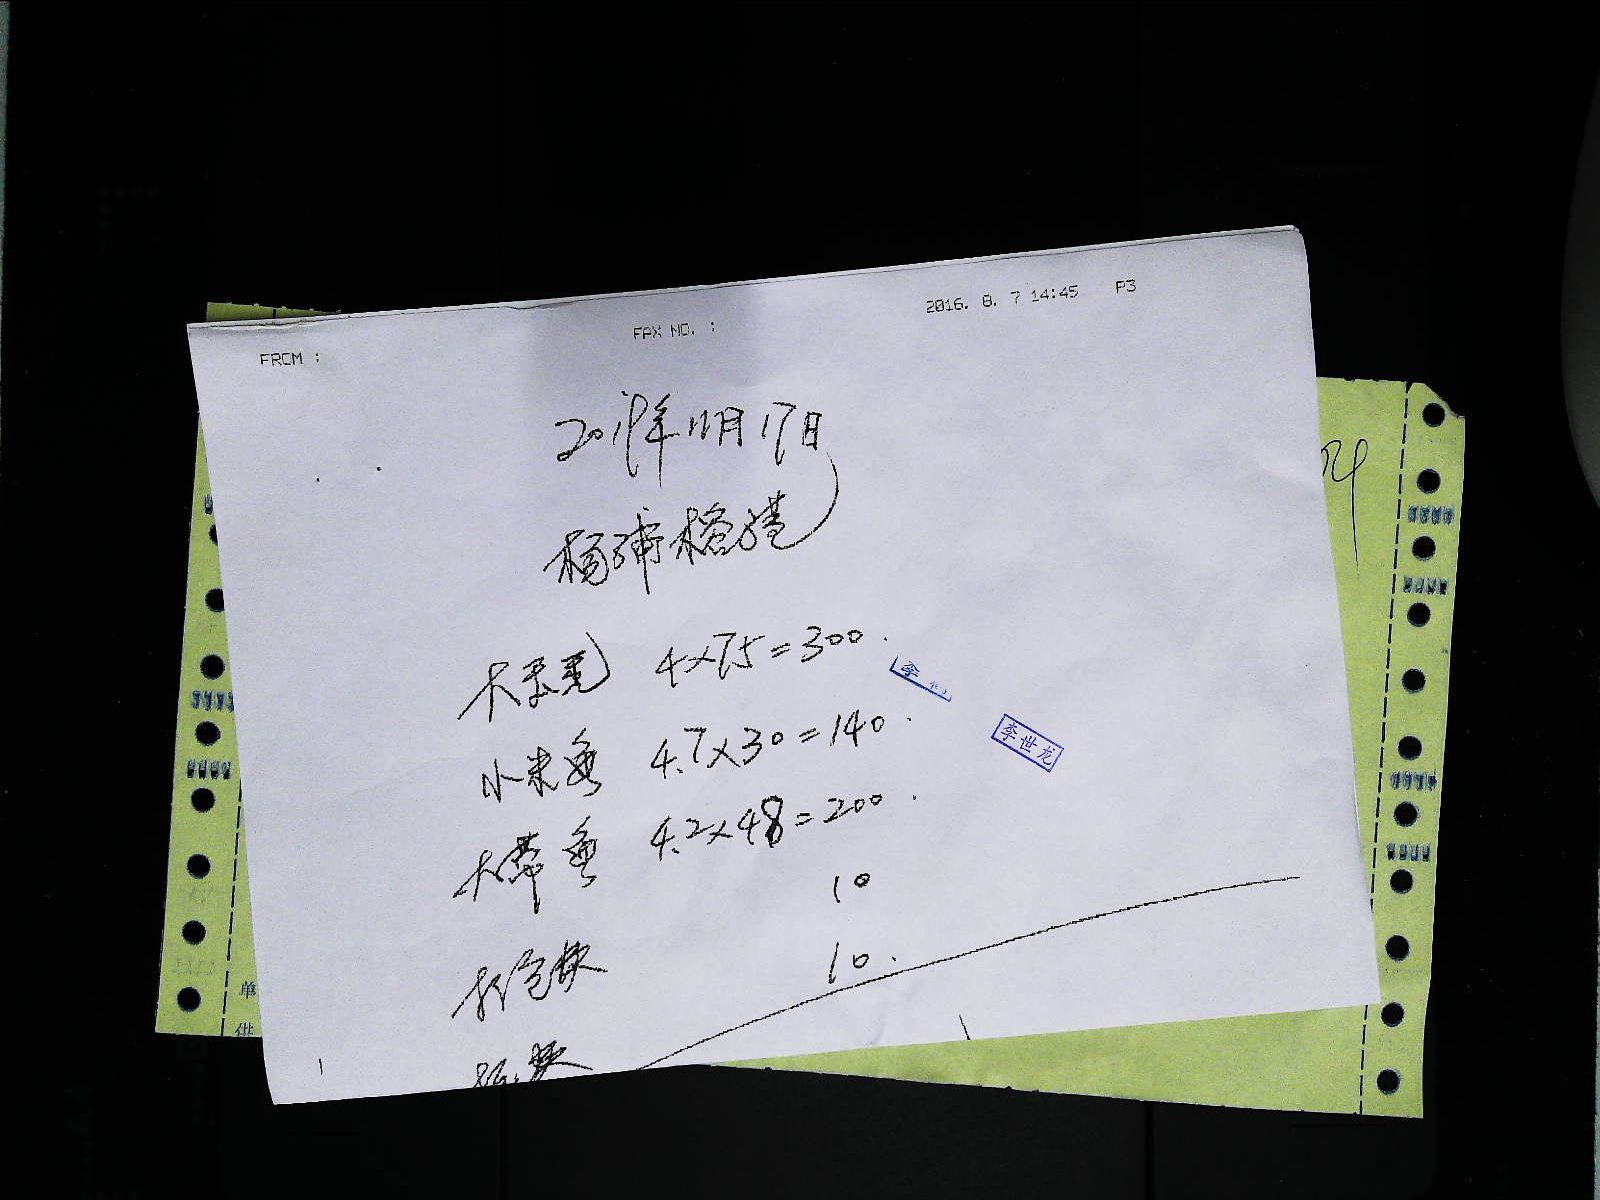 FROM :
FAX NO. :
2016. 8. 7 14:45 P3
2019年11月17日
杨浦
4×75=300.
李
小米鱼 4.7×30=140.
李世龙
大带鱼 4.2×48=200.
10
打包
10.
单
供